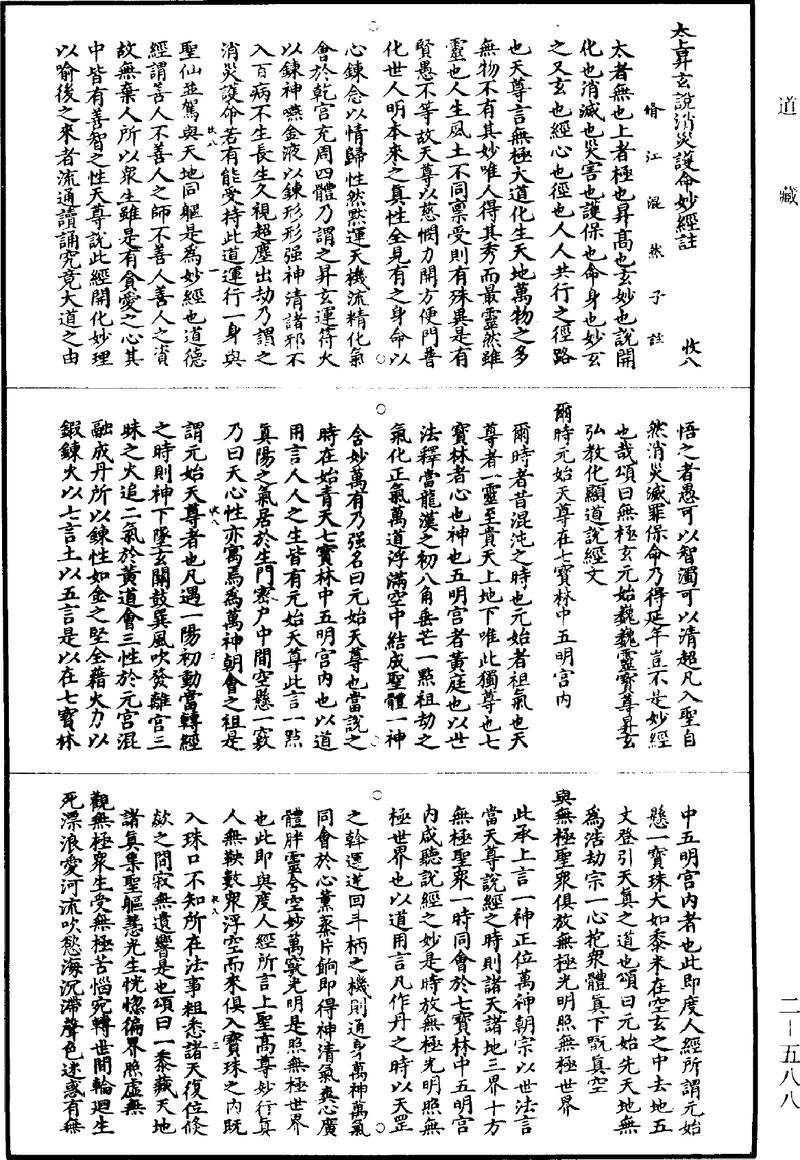 道藏
太上昇玄說消災護命妙經註
收八
婿江混然子註
太者無也上者極也昇高也玄妙也說開
化也消滅也災害也護保也命身也妙玄
之又玄也經心也徑也人人共行之徑路
也天尊言無極大道化生天地萬物之多
無物不有其妙唯人得其秀而最靈然雖
靈也人生風土不同稟受則有殊異是有
賢愚不等故天尊以慈憫力開方便門普
化世人明本來之真性全見有之身命以
心鍊念以情歸性然默運天機流精化氣
會於乾宮充周四體乃謂之昇玄運符火
以鍊神嚥金液以鍊形形强神清諸邪不
入百病不生長生久視超塵出劫乃謂之
消災護命若有能受持此道運行一身與
收八
一
聖仙並駕與天地同軀是為妙經也道德
經謂善人不善人之師不善人善人之資
故無棄人所以衆生雖是有貪愛之心其
中皆有善智之性天尊說此經開化妙理
以喻後之來者流通讀誦究竟大道之由
悟之者愚可以智濁可以清超凡入聖自
然消災滅罪保命乃得延年豈不是妙經
也哉頌曰無極玄元始巍巍靈寶尊昇玄
弘教化顯道說經文
爾時元始天尊在七寶林中五明宮內
爾時者昔混沌之時也元始者祖氣也天
尊者一靈至貴天上地下唯此獨尊也七
寶林者心也神也五明宮者黃庭也以世
法釋當龍漢之初八角垂芒一點祖劫之
氣化正氣萬道浮滿空中結成聖體一神
含妙萬有乃强名曰元始天尊也當說之
時在始青天七寶林中五明宮內也以道
用言人人之生皆有元始天尊此言一點
真陽之氣居於生門密戶中間空懸一竅
乃曰天心性亦寓焉為萬神朝會之祖是
收八
二
謂元始天尊者也凡遇一陽初動當轉經
之時則神下墜玄關鼓巽風吹發離宮三
昧之火追二氣於黃道會三性於元宮混
融成丹所以鍊性如金之堅全藉火力以
鍜鍊火以七言土以五言是以在七寶林
中五明宮內者也此即度人經所謂元始
懸一寶珠大如黍米在空玄之中去地五
丈登引天真之道也頌曰元始先天地無
為浩劫宗一心抱衆體真下既真空
與無極聖衆俱放無極光明照無極世界
此承上言一神正位萬神朝宗以世法言
當天尊說經之時則諸天諸地三界十方
無極聖衆一時同會於七寶林中五明宮
內咸聽說經之妙是時放無極光明照無
極世界也以道用言凡作丹之時以天罡
之幹運逆回斗柄之機則通身萬神萬氣
同會於心薰蒸片餉即得神清氣爽心廣
體胖靈兮空妙萬竅光明是照無極世界
也此即與度人經所言上聖高尊妙行真
人無鞅數衆浮空而來俱入寶珠之內既
收八
三
入珠口不知所在法事粗悉諸天復位倏
歘之間寂無遺響是也頌曰一黍藏天地
諸真集聖軀慧光生恍惚徧界照虛無
觀無極衆生受無極苦惱宛轉世間輪迴生
死漂浪愛河流吹慾海沉滯聲色迷惑有無
二－五八八